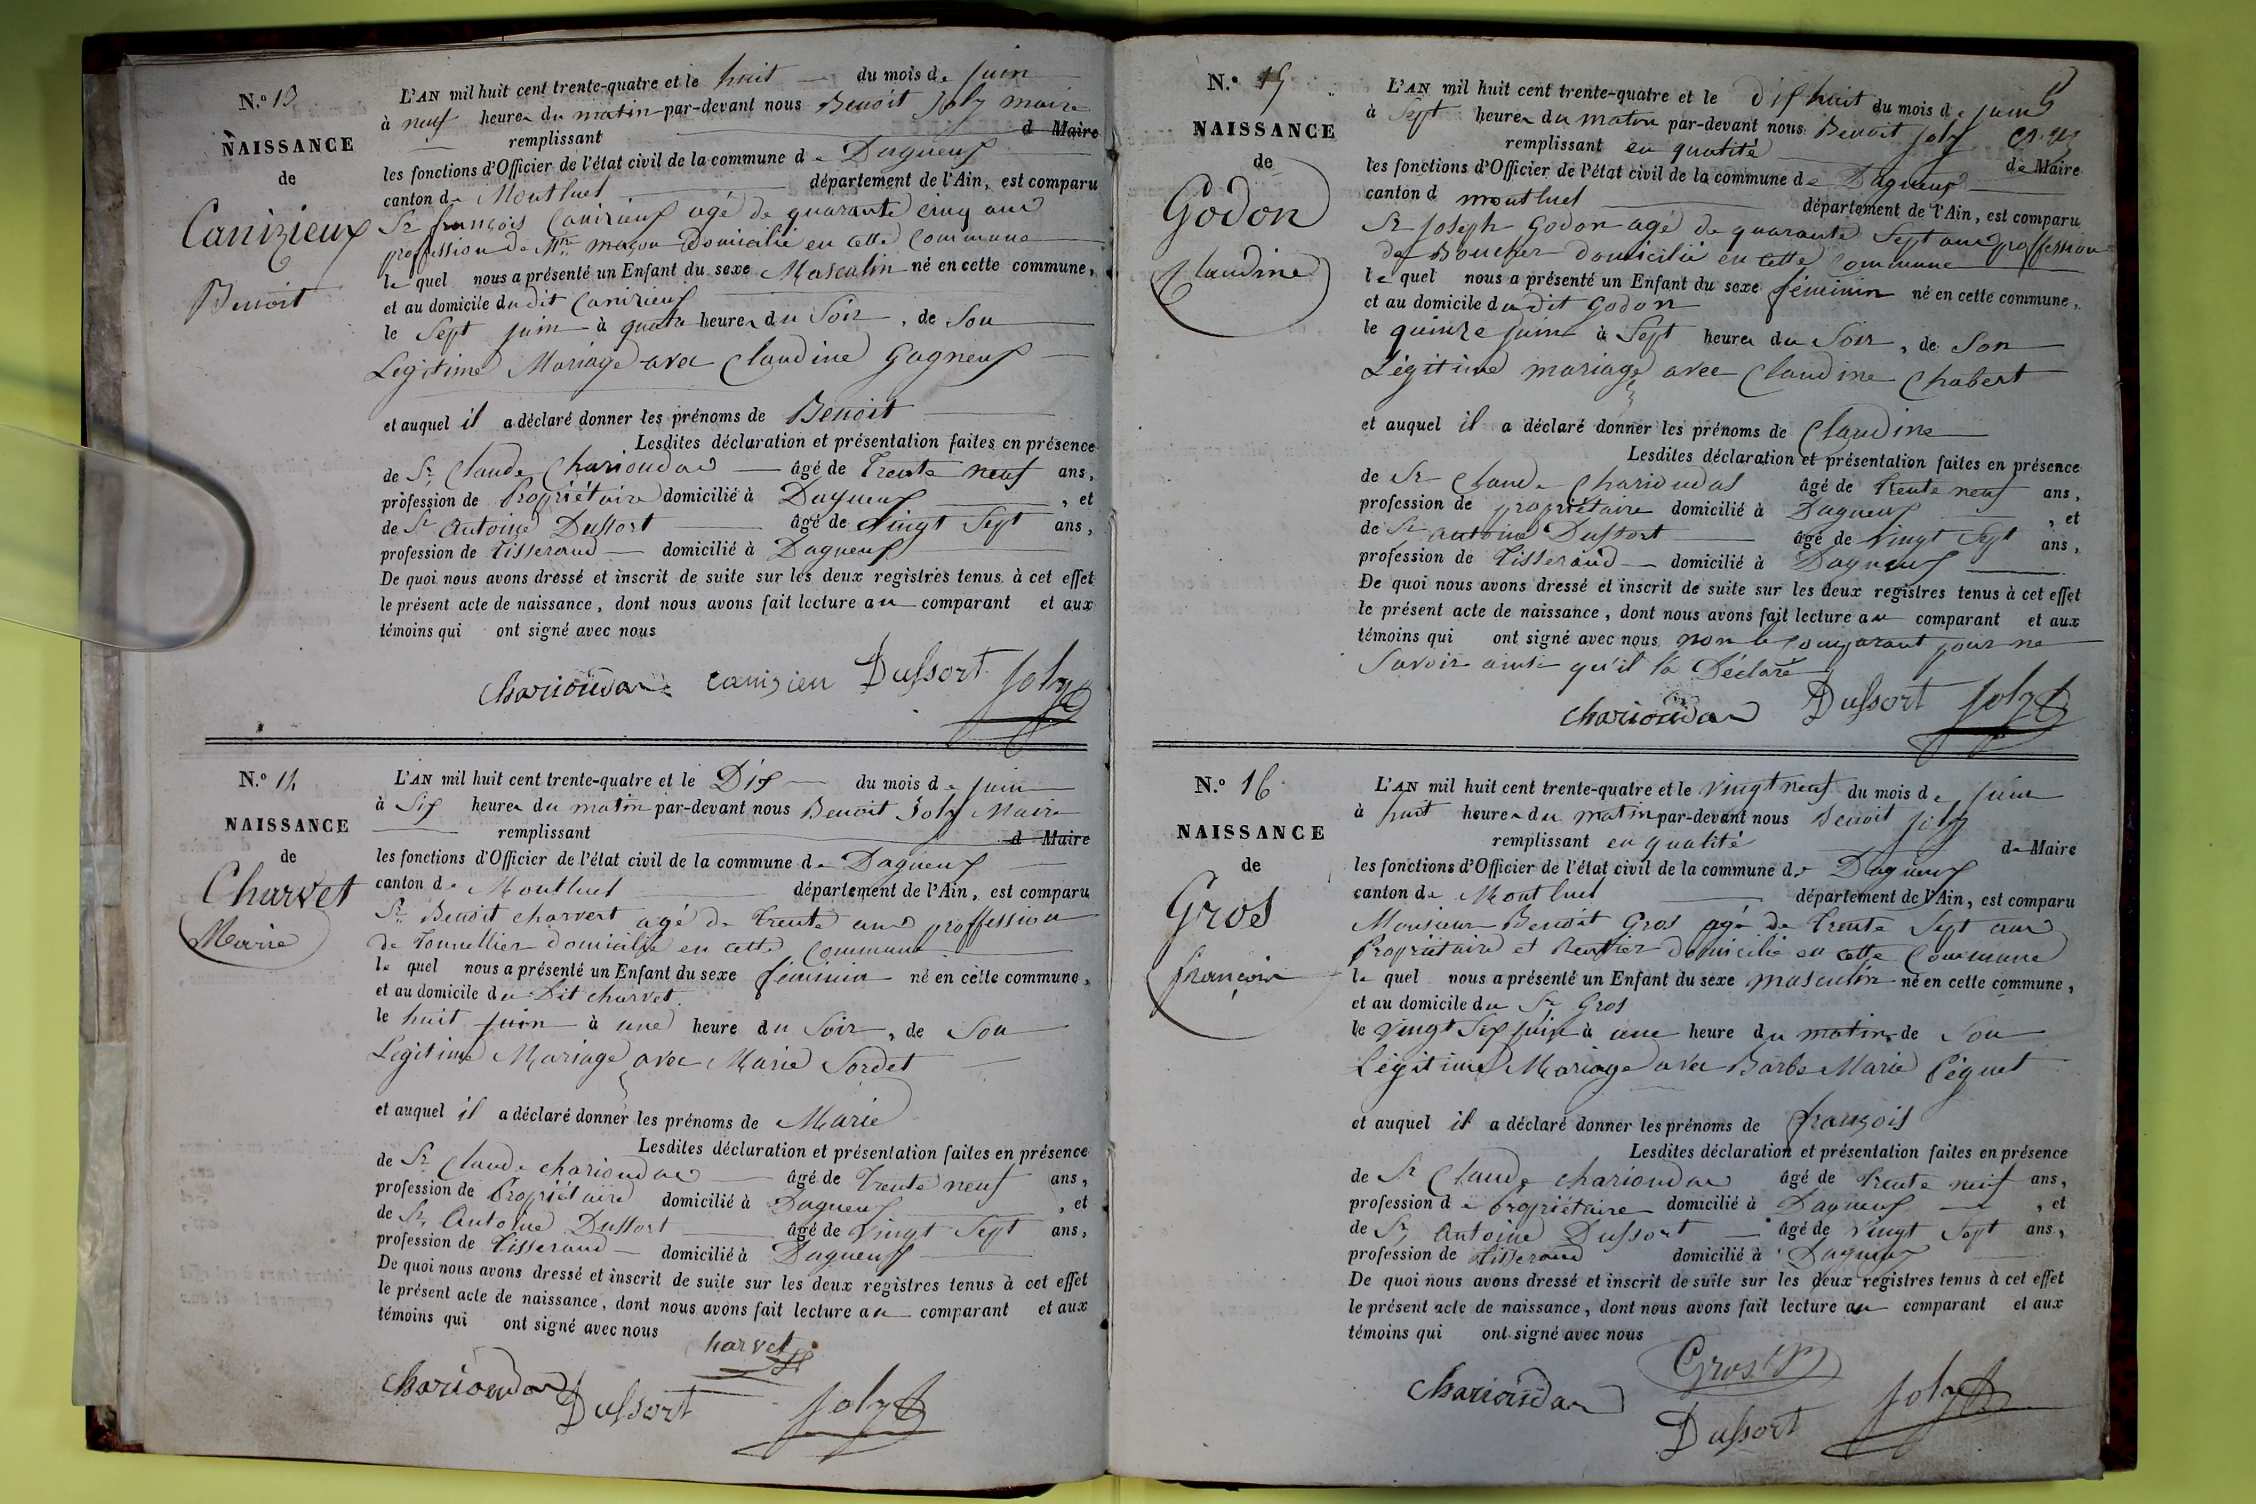 N.o 13
NAISSANCE
de
Canizieux
Benoit
L'AN mil huit cent trente-quatre et le huit du mois de Juin
à neuf heures du matin par-devant nous Benoit Joly maire
remplissant d Maire
les fonctions d'Officier de l'état civil de la commune de Dagneux
canton de Montluel département de l'Ain, est comparu
Sr françois Canizieux agé de quarante cinq ans
proffession de Mtre maçon Domicilié en cette Commune
le quel nous a présenté un Enfant du sexe Masculin né en cette commune,
et au domicile du dit Canizieux
le Sept juin à quatre heures du Soir, de Son
Legitime Mariage avec Claudine Gagneux
et auquel il a déclaré donner les prénoms de Benoit
Lesdites déclaration et présentation faites en présence
de Sr Claude Charioudas âgé de Trente neuf ans,
profession de Propriétaire domicilié à Dagneux, et
de Sr Antoine Dussort âgé de Vingt Sept ans,
profession de Tisserand domicilié à Dagneux
De quoi nous avons dressé et inscrit de suite sur les deux registres tenus à cet effet
le présent acte de naissance, dont nous avons fait lecture au comparant et aux
témoins qui ont signé avec nous
Charioudas canizieu Dussort Joly
N.o 14
NAISSANCE
de
Charvet
Marie
L'AN mil huit cent trente-quatre et le Dix du mois de Juin
à Six heures du matin par-devant nous Benoit Joly Maire
remplissant d Maire
les fonctions d'Officier de l'état civil de la commune de Dagneux
canton de Montluel département de l'Ain, est comparu
Sr Benoit charvert agé de Trente ans proffession
de Tonnellier domicilié en cette Commune
le quel nous a présenté un Enfant du sexe féminin né en cette commune,
et au domicile du Dit charvet
le huit juin à une heure du Soir, de Son
Legitime Mariage avec Marie Sordet
et auquel il a déclaré donner les prénoms de Marie
Lesdites déclaration et présentation faites en présence
de Sr Claude charioudas âgé de Trente neuf ans,
profession de Propriétaire domicilié à Dagneux, et
de Sr Antoine Dussort âgé de Vingt Sept ans,
profession de Tisserand domicilié à Dagneux
De quoi nous avons dressé et inscrit de suite sur les deux registres tenus à cet effet
le présent acte de naissance, dont nous avons fait lecture au comparant et aux
témoins qui ont signé avec nous
Charvet
Charioudas Dussort Joly
N.o 15
NAISSANCE
de
Godon
Claudine
L'AN mil huit cent trente-quatre et le dix huit du mois de juin
à Sept heures du matin par-devant nous Benoit Joly
remplissant en qualité de Maire
les fonctions d'Officier de l'état civil de la commune de Dagneux
canton d montluel département de l'Ain, est comparu
Sr Joseph Godon agé de quarante Sept ans proffession
de Boucher domicilié en cette Commune
le quel nous a présenté un Enfant du sexe féminin né en cette commune,
et au domicile du dit Godon
le quinze juin à Sept heures du Soir, de Son
Légitime mariage avec Claudine Chabert
et auquel il a déclaré donner les prénoms de Claudine
Lesdites déclaration et présentation faites en présence
de Sr Claude Charioudas âgé de Trente neuf ans,
profession de propriétaire domicilié à Dagneux, et
de Sr antoine Dussort âgé de Vingt Sept ans,
profession de Tisserand domicilié à Dagneux
De quoi nous avons dressé et inscrit de suite sur les deux registres tenus à cet effet
le présent acte de naissance, dont nous avons fait lecture au comparant et aux
témoins qui ont signé avec nous non le comparant pour ne
Savoir ainsi qu'il l'a Déclaré
Charioudas Dussort Joly
N.o 16
NAISSANCE
de
Gros
françois
L'AN mil huit cent trente-quatre et le vingt neuf du mois de juin
à huit heures du matin par-devant nous Benoit Joly
remplissant en qualité de Maire
les fonctions d'Officier de l'état civil de la commune de Dagneux
canton de Montluel département de l'Ain, est comparu
Monsieur Benoit Gros agé de Trente Sept ans
Propriétaire et Rentier domicilié en cette Commune
le quel nous a présenté un Enfant du sexe masculin né en cette commune,
et au domicile du Sr Gros
le vingt Six juin à une heure du matin de Son
Légitime Mariage avec Barbe Marie Péguet
et auquel il a déclaré donner les prénoms de françois
Lesdites déclaration et présentation faites en présence
de Sr Claude charioudas âgé de Trente neuf ans,
profession de Propriétaire domicilié à Dagneux, et
de Sr Antoine Dussort âgé de Vingt Sept ans,
profession de Tisserand domicilié à Dagneux
De quoi nous avons dressé et inscrit de suite sur les deux registres tenus à cet effet
le présent acte de naissance, dont nous avons fait lecture au comparant et aux
témoins qui ont signé avec nous
Gros
Charioudas Dussort Joly